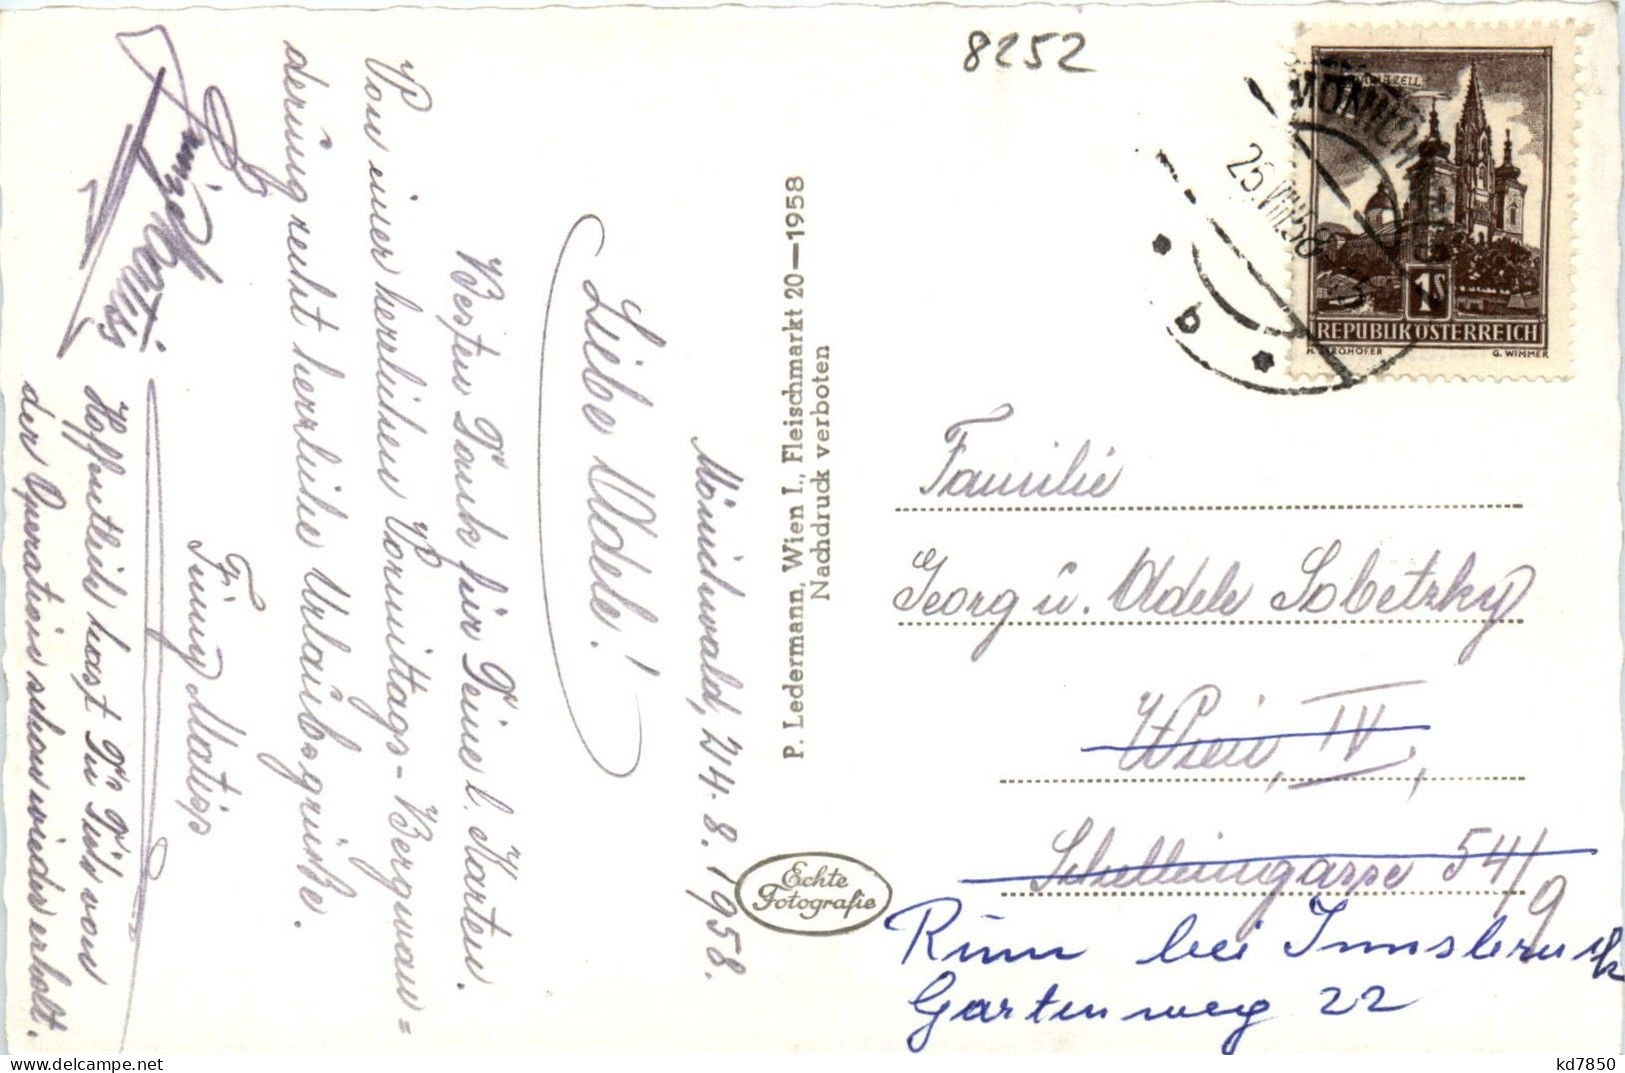 8252
MARIAZELL
MÖNICH
25.VIII.58
b
1S
REPUBLIK ÖSTERREICH
G. WIMMER
P. Ledermann, Wien I., Fleischmarkt 20—1958
Nachdruck verboten
Echte
Fotografie
Mönichwald, 24.8.1958.
Liebe Adele!
Besten Dank für Deine l. Karten.
Von einer herrlichen Vormitags-Bergwan=
derung recht herzliche Urlaubsgrüße.
Fanny Matisz
Hoffentlich hast Du Dich von
der Operation schon wieder erholt.
Familie
Georg u. Adele Sobetzky
Wien, IV,
Schelleingasse 54/9
Rum bei Innsbruck
Gartenweg 22
kd7850